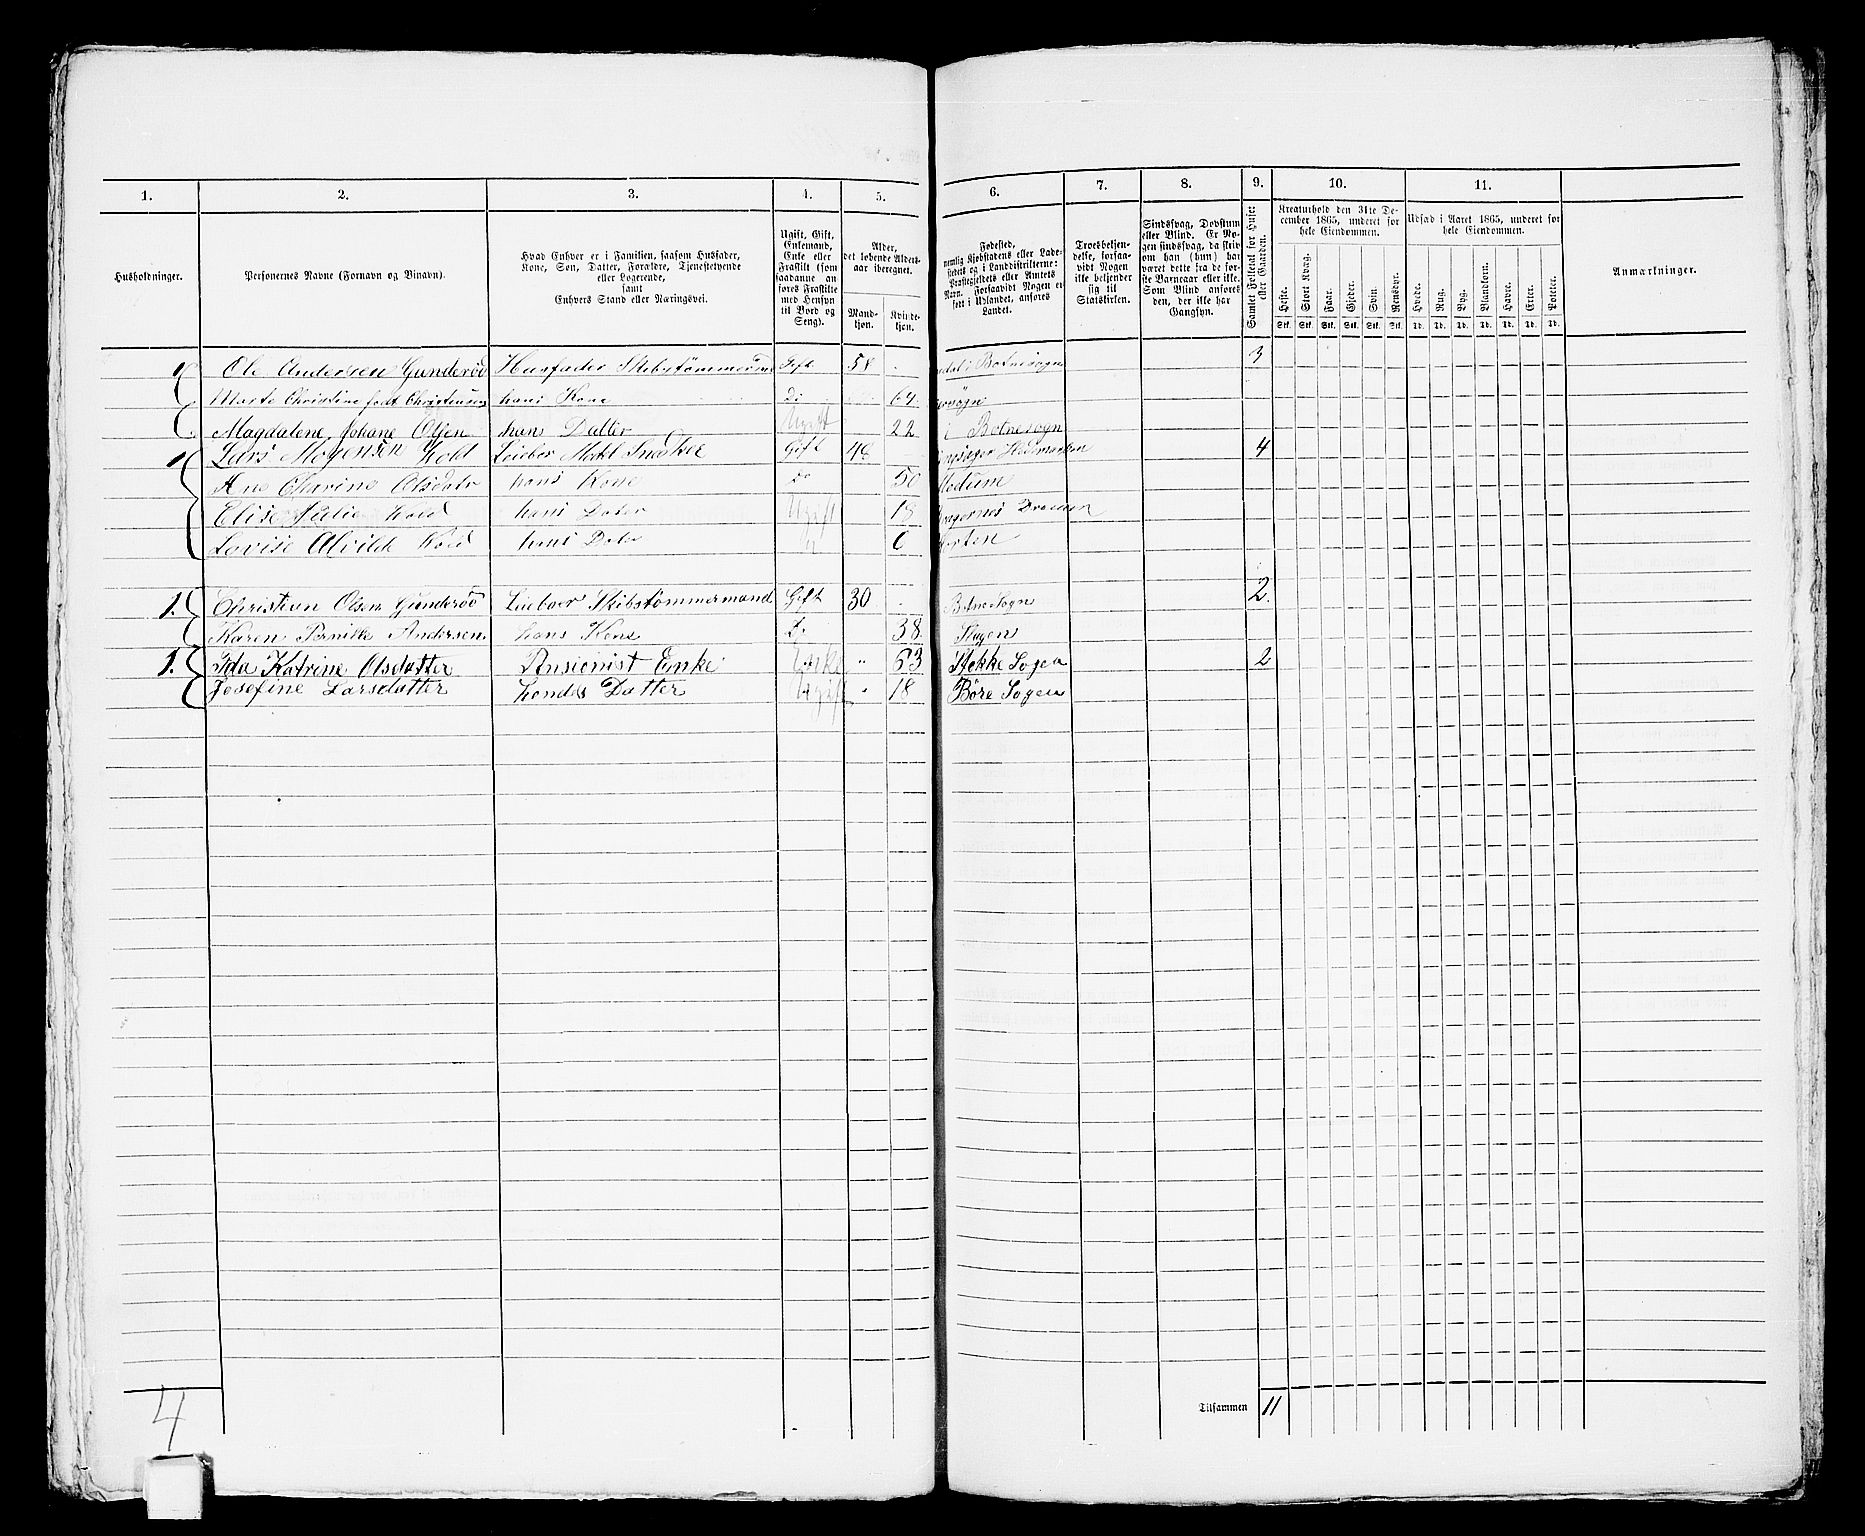 1. 2. 3. 4. 5. 6. 7. 8. 9. 10. 11.
Husholdninger.
Personernes Navne (Fornavn og Binavn).
Hvad Enhver er i Familien, saasom Husfader,
Kone, Søn, Datter, Forældre, Tjenestetyende
eller Logerende,
samt
Enhvers Stand eller Næringsvei.
Ugift, Gift,
Enkemand,
Enke eller
Fraskilt (som
saadanne an-
føres Fraskilte
med Hensyn
til Bord og
Seng).
Alder,
det løbende Alders-
aar iberegnet.
Mand-
kjøn.
Kvinde-
kjøn.
Fødested,
nemlig Kjøbstadens eller Lade-
stedets og i Landdistrikterne:
Præstegjeldets eller Amtets
Navn. Forsaavidt Nogen er
født i Udlandet, anføres
Landet.
Troesbekjen-
delse, forsaa-
vidt Nogen
ikke bekjender
sig til
Statskirken.
Sindssvag, Døvstum
eller Blind. Er No-
gen sindssvag, da skriv
om han (hun) har
været dette fra de før-
ste Barneaar eller ikke.
Som Blind anføres
den, der ikke har
Gangsyn.
Samlet Folketal for Huset
eller Gaarden.
Kreaturhold den 31te De-
cember 1865, underet for
hele Eiendommen.
Heste. Stort Kvæg. Faar. Gjeder. Svin. Rensdyr.
Stk. Stk. Stk. Stk. Stk. Stk.
Udsæd i Aaret 1865, underet for
hele Eiendommen.
Hvede. Rug. Byg. Blandkorn. Havre. Erter. Poteter.
Td. Td. Td. Td. Td. Td. Td.
Anmærkninger.
1 Ole Andersen Gunderød Husfader Skibstømmermd Gift 58 i Botnesogn 3
Marte Christine født Christensen hans Kone Do 64
Magdalene Johane Olsen hans Datter Ugift 22 i Botnesogn
1 Lars Mogensen Kold Leieboer Gift 48 Hedemarken 4
Ane Olsdatr hans Kone Do 50 Modum
Elise Julie Kold hans Dater Ugift Drammen
Lovise Alvilde Kold hans Dater Horten
1. Christian Olsen Gunderød Leieboer Skibstømmermand Gift 30 Botne Sogn 2
Karen Pernille Andersen hans Kone Do 38 Slagen
1. Ida Katrine Olsdatter Pensionist Enke Enke " 63 Stokke Sogen 2
Josefine Larsdatter Datter Ugift " 18 Börre Sogen
Tilsammen 11
4